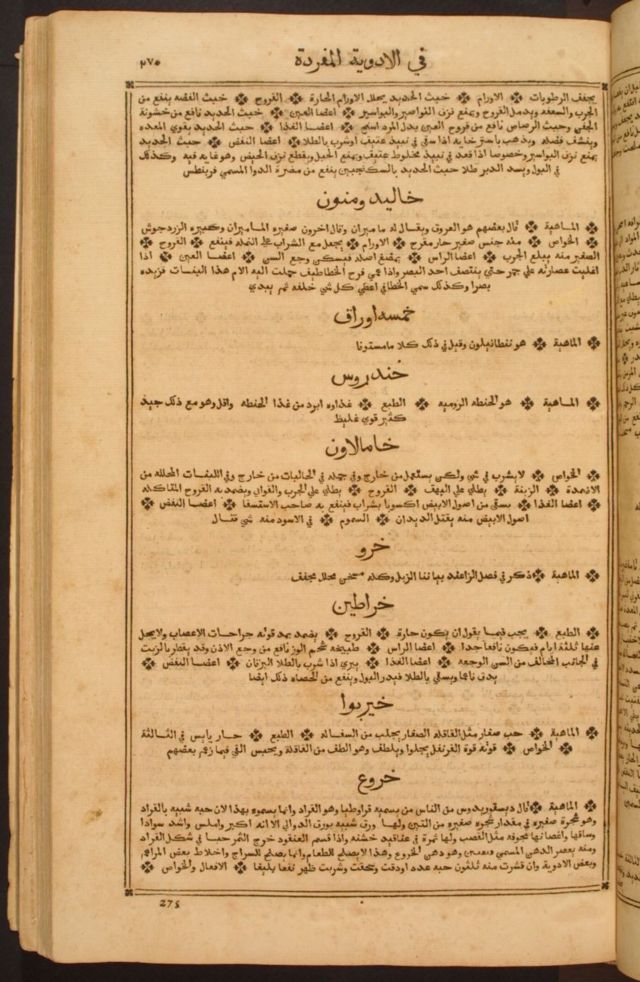 ٢٧٥ في الادوية المفردة
يجفف الرطوبات ❖ الاورام ❖ خبث الحديد يحلل الاورام الحارة ❖ القروح ❖ خبث الفضه ينفع من
الجرب والسعفه ويدمل القروح ويمنع نزف النواصير والبواسير ❖ اعضا العين ❖ خبث الحديد نافع من خشونة
الجفن وخبث الرصاص نافع من قروح العين بدل المرداسنج ❖ اعضا الغذا ❖ خبث الحديد يقوي المعده
وينشف فضله ويذهب باسترخايه اذا سقي في نبيذ عتيف اوشرب بالطلا ❖ اعضا النفض ❖ خبث الحديد
يمنع نزف البواسير وخصوصا اذا قعد في نبيذ مخلوط عتيف ويمنع الحبل ويقطع نزف الحيض وهو غايه فيه وكذلك
في البول ويشد الدبر طلا خبث الحديد بالسكنجبين ينفع من مضرة الدوا المسمي فرينطس
خاليدومنون
❖ الماهية ❖ قال بعضهم هو العروق ويقال له ماميران وقال اخرون صغيره الماميران وكبيره الزردجوش
❖ الخواص ❖ منه جنس صغير حار مقرح ❖ الاورام ❖ يجعل مع الشراب علي النمله فينفع ❖ القروح ❖
الصغير منه يبلع الجرب ❖ اعضا الراس ❖ يمضغ اصله فيسكن وجع السن ❖ اعضا العين ❖ اذا
اغليت عصارته علي جمر حتي ينتصف احد البصر واذا عمي فرخ الخطاطيف حملت اليه الام هذا النبات فزيده
بصرا وكذلك سمي الخطافي اعطي كل شي خلقه ثم يهدي
خمسه اوراق
❖ الماهية ❖ هو نفطافيلون وقيل في ذلك كلا مامستوفا
خندروس
❖ الماهية ❖ هو الحنطه الروميه ❖ الطبع ❖ غذاوه ابرد من غذا الحنطه واقل وهو مع ذلك جيد
كثير قوي غليظ
خامالاون
❖ الخواص ❖ لا يشرب في شي ولكن يستعمل من خارج وفي جمله في الجاليات من خارج وفي اللينات المحلله من
الاضمدة ❖ الزينة ❖ يطلي علي البهف ❖ القروح ❖ يطلي علي الجرب والقوابي ويضمد به القروح المتاكله
❖ اعضا الغذا ❖ يسقي من اصول الابيض اكسوبا بشراب فينفع به صاحب الاستسقا ❖ اعضا النفض ❖
اصول الابيض منه يقتل الديدان ❖ السموم ❖ في الاسود منه شي قتال
خرو
❖ الماهية ❖ ذكر في فصل الزاعند بياننا الزبل وكله مسخن محلل مجفف
خراطين
❖ الطبع ❖ يجب فيما يقول ان يكون حارة ❖ القروح ❖ يضمد بمدقوقه جراحات الاعصاب ولا يحل
عنها ثلثة ايام فيكون نافعا جدا ❖ اعضا الراس ❖ طبيخه بشحم الوز نافع من وجع الاذن وقد يقطر بالزيت
في الجانب المخالف من السن الوجعه ❖ اعضا الغذا ❖ يبري اذا شرب بالطلا اليرقان ❖ اعضا النفض ❖
يدق ناعما ويسقي بالطلا فيدر البول وينفع من الحصاه ذلك ايضا
خيربوا
❖ الماهية ❖ حب صغار مثل القاقله الصغار يجلب من السفاله ❖ الطبع ❖ حار يابس في الثالثة
❖ الخواص ❖ قوته قوة القرنفل يجلوا ويلطف وهو الطف من القاقلة ويحبس القي فيما زعم بعضهم
خروع
❖ الماهية ❖ قال ديسقوريدوس من الناس من يسميه قراوطيا وهو القراد وانما يسموه بهذا لان حبه شبيه بالقراد
وهو شجرة صغيره في مقدار شجره صغيره من التين ولها ورق شبيه بورق الدوالي الا انه اكبر واملس واشد سوادا
وساقها واغصانها مجوفه مثل القصب ولها ثمرة في عناقيد خشنه واذا قسم العنقود خرج الثمر حبا في شكل القراد
ومنه يعصر الدهن المسمي وهو دهن الخروع وهذا لا يصلح للطعام وانما يصلح للسراج واخلاط بعض المراهم
وبعض الادوية وان قشرت منه ثلثون حبه عدد اودقت وسحقت وشربت ظهر نفعا بليغا ❖ الافعال والخواص ❖
275